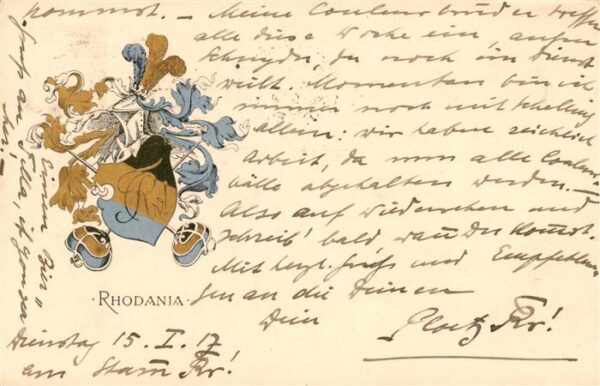 kommst. – Meine Couleurbrüder treffen
alle diese Woche ein, außer
Schnyder, der noch im Dienst
weilt. Momentan bin ich
immer noch mit Schelling
allein: wir haben ziemlich
Arbeit, da nun alle Couleur-
bälle abgehalten werden. –
Also auf Wiedersehen und
schreib' bald wann Du kommst.
Mit herzl. Gruß und Empfehlun-
gen an die Deinen
Dein
RHODANIA
Dienstag 15. I. 17
am Stamm
Gruß an
Einen